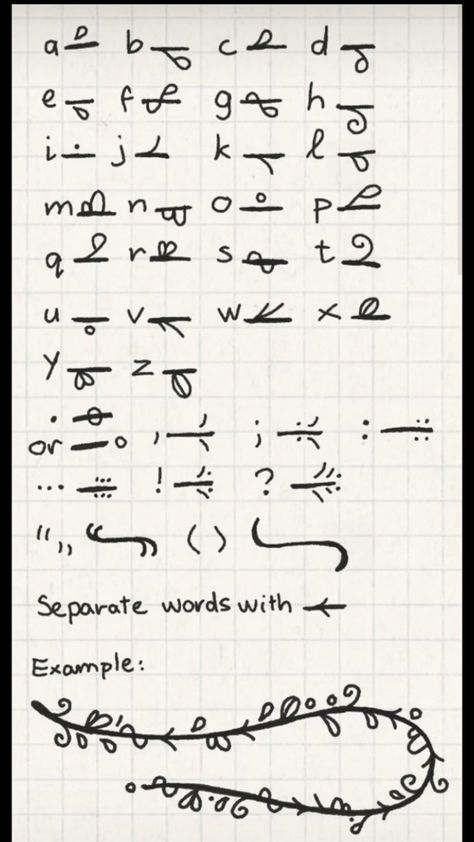 a b c d
e f g h
i j k l
m n o p
q r s t
u v w x
y z
. , ; :
or
... ! ?
",, ( )
Separate words with
Example: